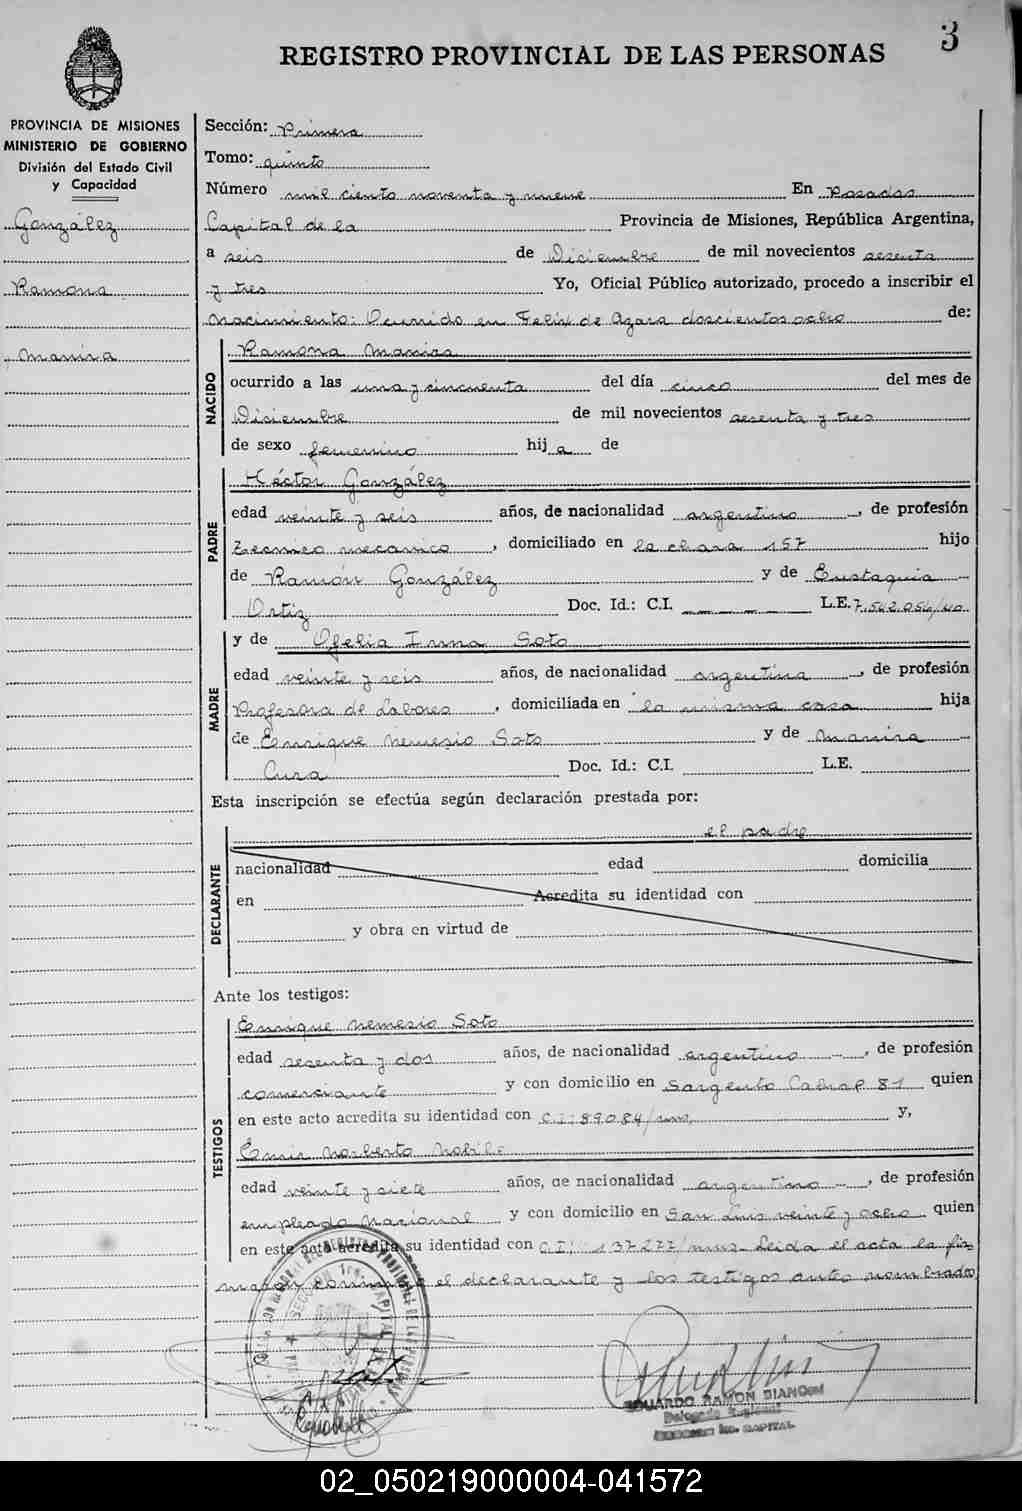 3
REGISTRO PROVINCIAL DE LAS PERSONAS
PROVINCIA DE MISIONES
MINISTERIO DE GOBIERNO
División del Estado Civil
y Capacidad
González
Ramona
Manira
Sección: Primera
Tomo: quinto
Número mil ciento noventa y nueve En Posadas
Capital de la Provincia de Misiones, República Argentina,
a seis de Diciembre de mil novecientos sesenta
y tres Yo, Oficial Público autorizado, procedo a inscribir el
Nacimiento: Ocurrido en Felix de Azara doscientos ocho de:
NACIDO
Ramona Manira
ocurrido a las una y cincuenta del día cinco del mes de
Diciembre de mil novecientos sesenta y tres
de sexo femenino hij a de
PADRE
Héctor González
edad veinte y seis años, de nacionalidad argentino, de profesión
Tecnico mecanico, domiciliado en la chara 157 hijo
de Ramón González y de Eustaquia
Ortiz Doc. Id.: C.I. L.E. 7.542.054/40
MADRE
y de Ofelia Irma Soto
edad veinte y seis años, de nacionalidad argentina, de profesión
Profesora de Labores, domiciliada en la misma casa hija
de Enrique Nemesio Soto y de Manira
Cura Doc. Id.: C.I. L.E.
Esta inscripción se efectúa según declaración prestada por:
el padre
DECLARANTE
nacionalidad edad domicilia
en Acredita su identidad con
y obra en virtud de
Ante los testigos:
TESTIGOS
Enrique Nemesio Soto
edad sesenta y dos años, de nacionalidad argentino, de profesión
comerciante y con domicilio en Sargento Cabral 81 quien
en este acto acredita su identidad con C.I: 89084/mnes, y,
Emir Norberto
edad veinte y siete años, de nacionalidad argentino, de profesión
empleado Nacional y con domicilio en San Luis veinte y ocho quien
en este acto acredita su identidad con C.I: 137277/mnes Leida el acta la fir
maron conmigo el declarante y los testigos antes nombrados
EDUARDO RAMON BIANCONI
Delegado Regional
CAPITAL
02_050219000004-041572